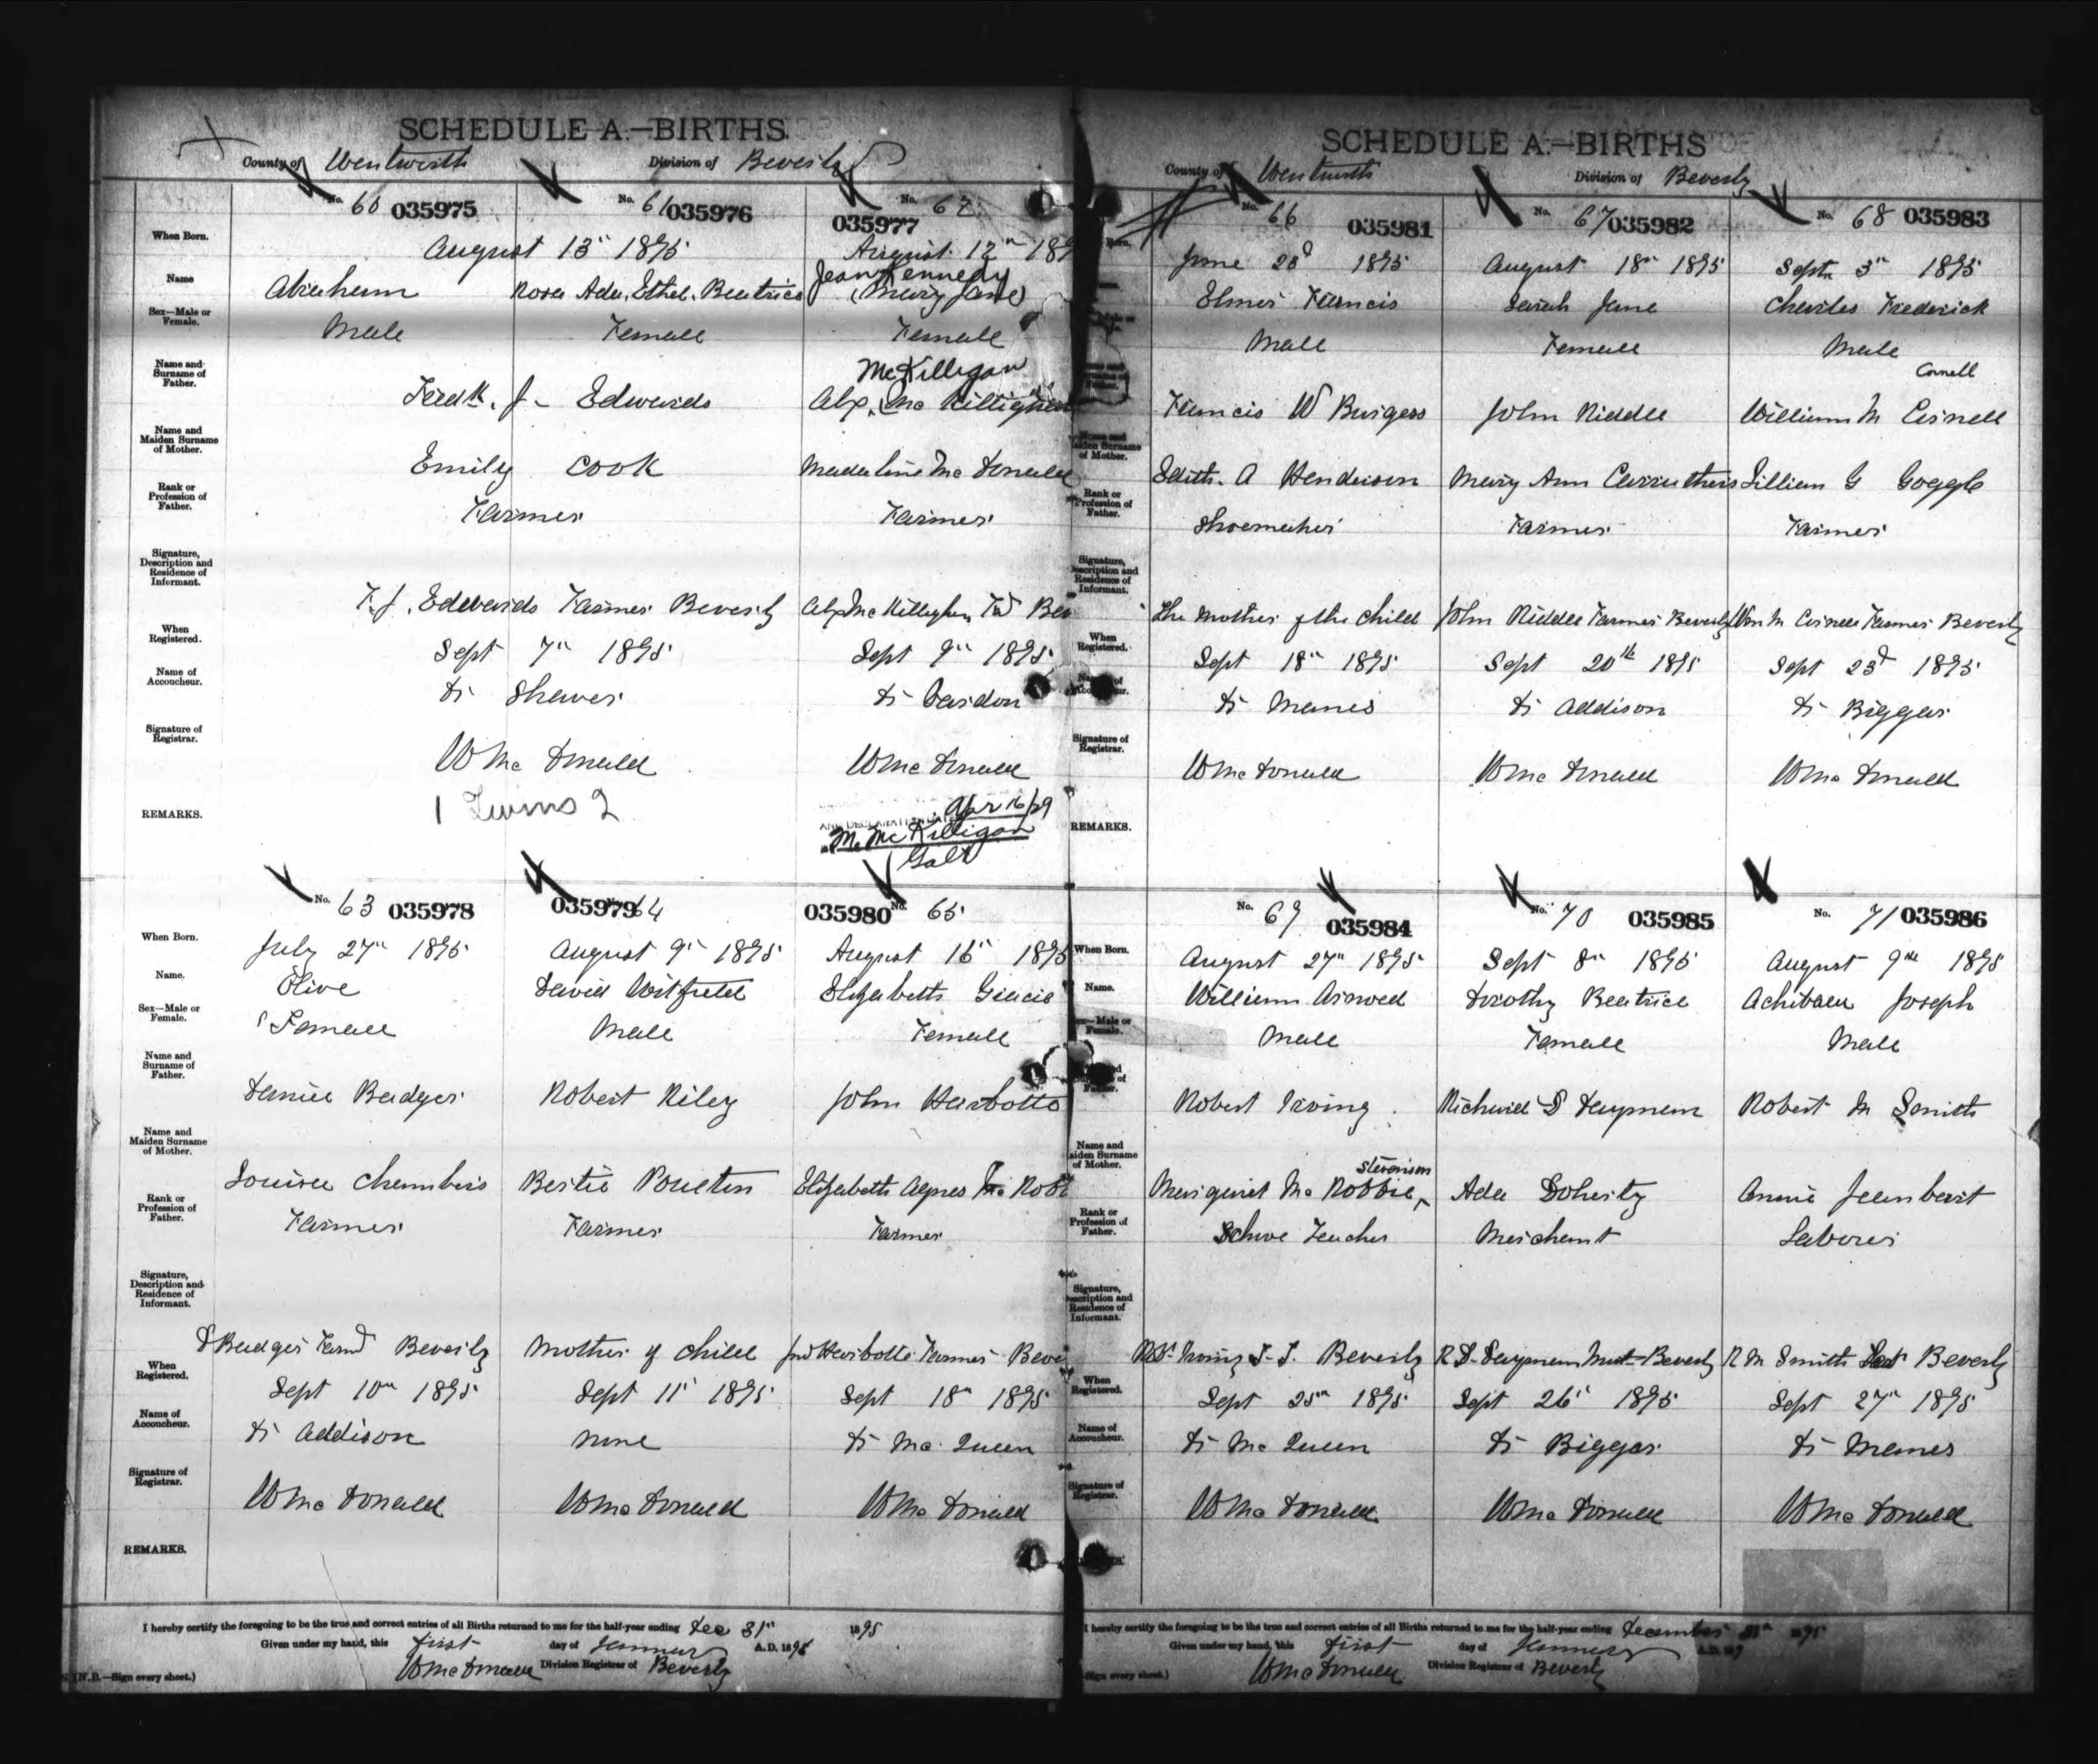 SCHEDULE A.—BIRTHS.
County of Wentworth Division of Beverly
No. 60 035975 No. 61 035976 035977 No. 62
When Born. August 13th 1895 August 12th 189
Name Abraham Rosa Ada, Ethel, Beatrice Jean Kennedy (Mary Jane)
Sex—Male or Female. Male Female Female
Name and Surname of Father. Fredk. J. Edwards McKilligan Alex. Mc Killighan
Name and Maiden Surname of Mother. Emily Cook Madaline Mc Donald
Rank or Profession of Father. Farmer Farmer
Signature, Description and Residence of Informant. F. J. Edwards Farmer Beverly Alex Mc Killighan Bev
When Registered. Sept 7th 1895 Sept 9th 1895
Name of Accoucheur. Dr Shaver Dr Bardon
Signature of Registrar. W Mc Donald W Mc Donald
REMARKS. 1 Twins 2 Apr 16/29
AND DECLARATION
M. McKilligan
Galt
No. 63 035978 035979 64 035980 No. 65
When Born. July 27th 1895 August 9th 1895 August 16th 1895
Name. Olive David Witfield Elizabeth Gracie
Sex—Male or Female. Female Male Female
Name and Surname of Father. Daniel Badger Robert Riley John Harbottle
Name and Maiden Surname of Mother. Louisa Chambers Bertie Poulton Elizabeth Agnes Mc Robb
Rank or Profession of Father. Farmer Farmer Farmer
Signature, Description and Residence of Informant. D Badger Farmr Beverly Mother of child Jno Harbottle Farmer Beve
When Registered. Sept 10th 1895 Sept 11th 1895 Sept 18th 1895
Name of Accoucheur. Dr Addison None Dr Mc Queen
Signature of Registrar. W Mc Donald W Mc Donald W Mc Donald
REMARKS.
I hereby certify the foregoing to be the true and correct entries of all Births returned to me for the half-year ending Dec 31st 1895
Given under my hand, this first day of January A.D. 1896
(N.B.—Sign every sheet.) W Mc Donald Division Registrar of Beverly
SCHEDULE A.—BIRTHS
County of Wentworth Division of Beverly
No. 66 035981 No. 67 035982 No. 68 035983
Born. June 23d 1895 August 18th 1895 Sept 3rd 1895
Elmer Francis Sarah Jane Charles Frederick
Male Female Male
Cornell
Francis W Burgess John Riddle William M Cornell
Name and Maiden Surname of Mother. Edith. A Henderson Mary Ann Carruthers Lillian G Goggle
Rank or Profession of Father. Shoemaker Farmer Farmer
Signature, Description and Residence of Informant. The Mother of the child John Riddle Farmer Beverly Wm M Cornell Farmer Beverly
When Registered. Sept 18th 1895 Sept 20th 1895 Sept 23d 1895
Name of Accoucheur. Dr Manes Dr Addison Dr Biggar
Signature of Registrar. W Mc Donald W Mc Donald W Mc Donald
REMARKS.
No. 69 035984 No. 70 035985 No. 71 035986
When Born. August 27th 1895 Sept 8th 1895 August 9th 1895
Name. William Atwood Dorothy Beatrice Achibald Joseph
Sex—Male or Female. Male Female Male
Robert Irving Richard D Dayman Robert M Smith
Stevenson
Name and Maiden Surname of Mother. Margaret Mc Robbie Ada Doherty Annie Jeanbart
Rank or Profession of Father. School Teacher Merchant Laborer
Signature, Description and Residence of Informant. Robt Irving S.T. Beverly R D. Dayman Mert Beverly R M Smith Beverly
When Registered. Sept 25th 1895 Sept 26th 1895 Sept 27th 1895
Name of Accoucheur. Dr Mc Queen Dr Biggar Dr Manes
Signature of Registrar. W Mc Donald W Mc Donald W Mc Donald
I hereby certify the foregoing to be the true and correct entries of all Births returned to me for the half-year ending December 31st 1895
Given under my hand, this first day of January A.D. 189
Sign every sheet.) W Mc Donald Division Registrar of Beverly